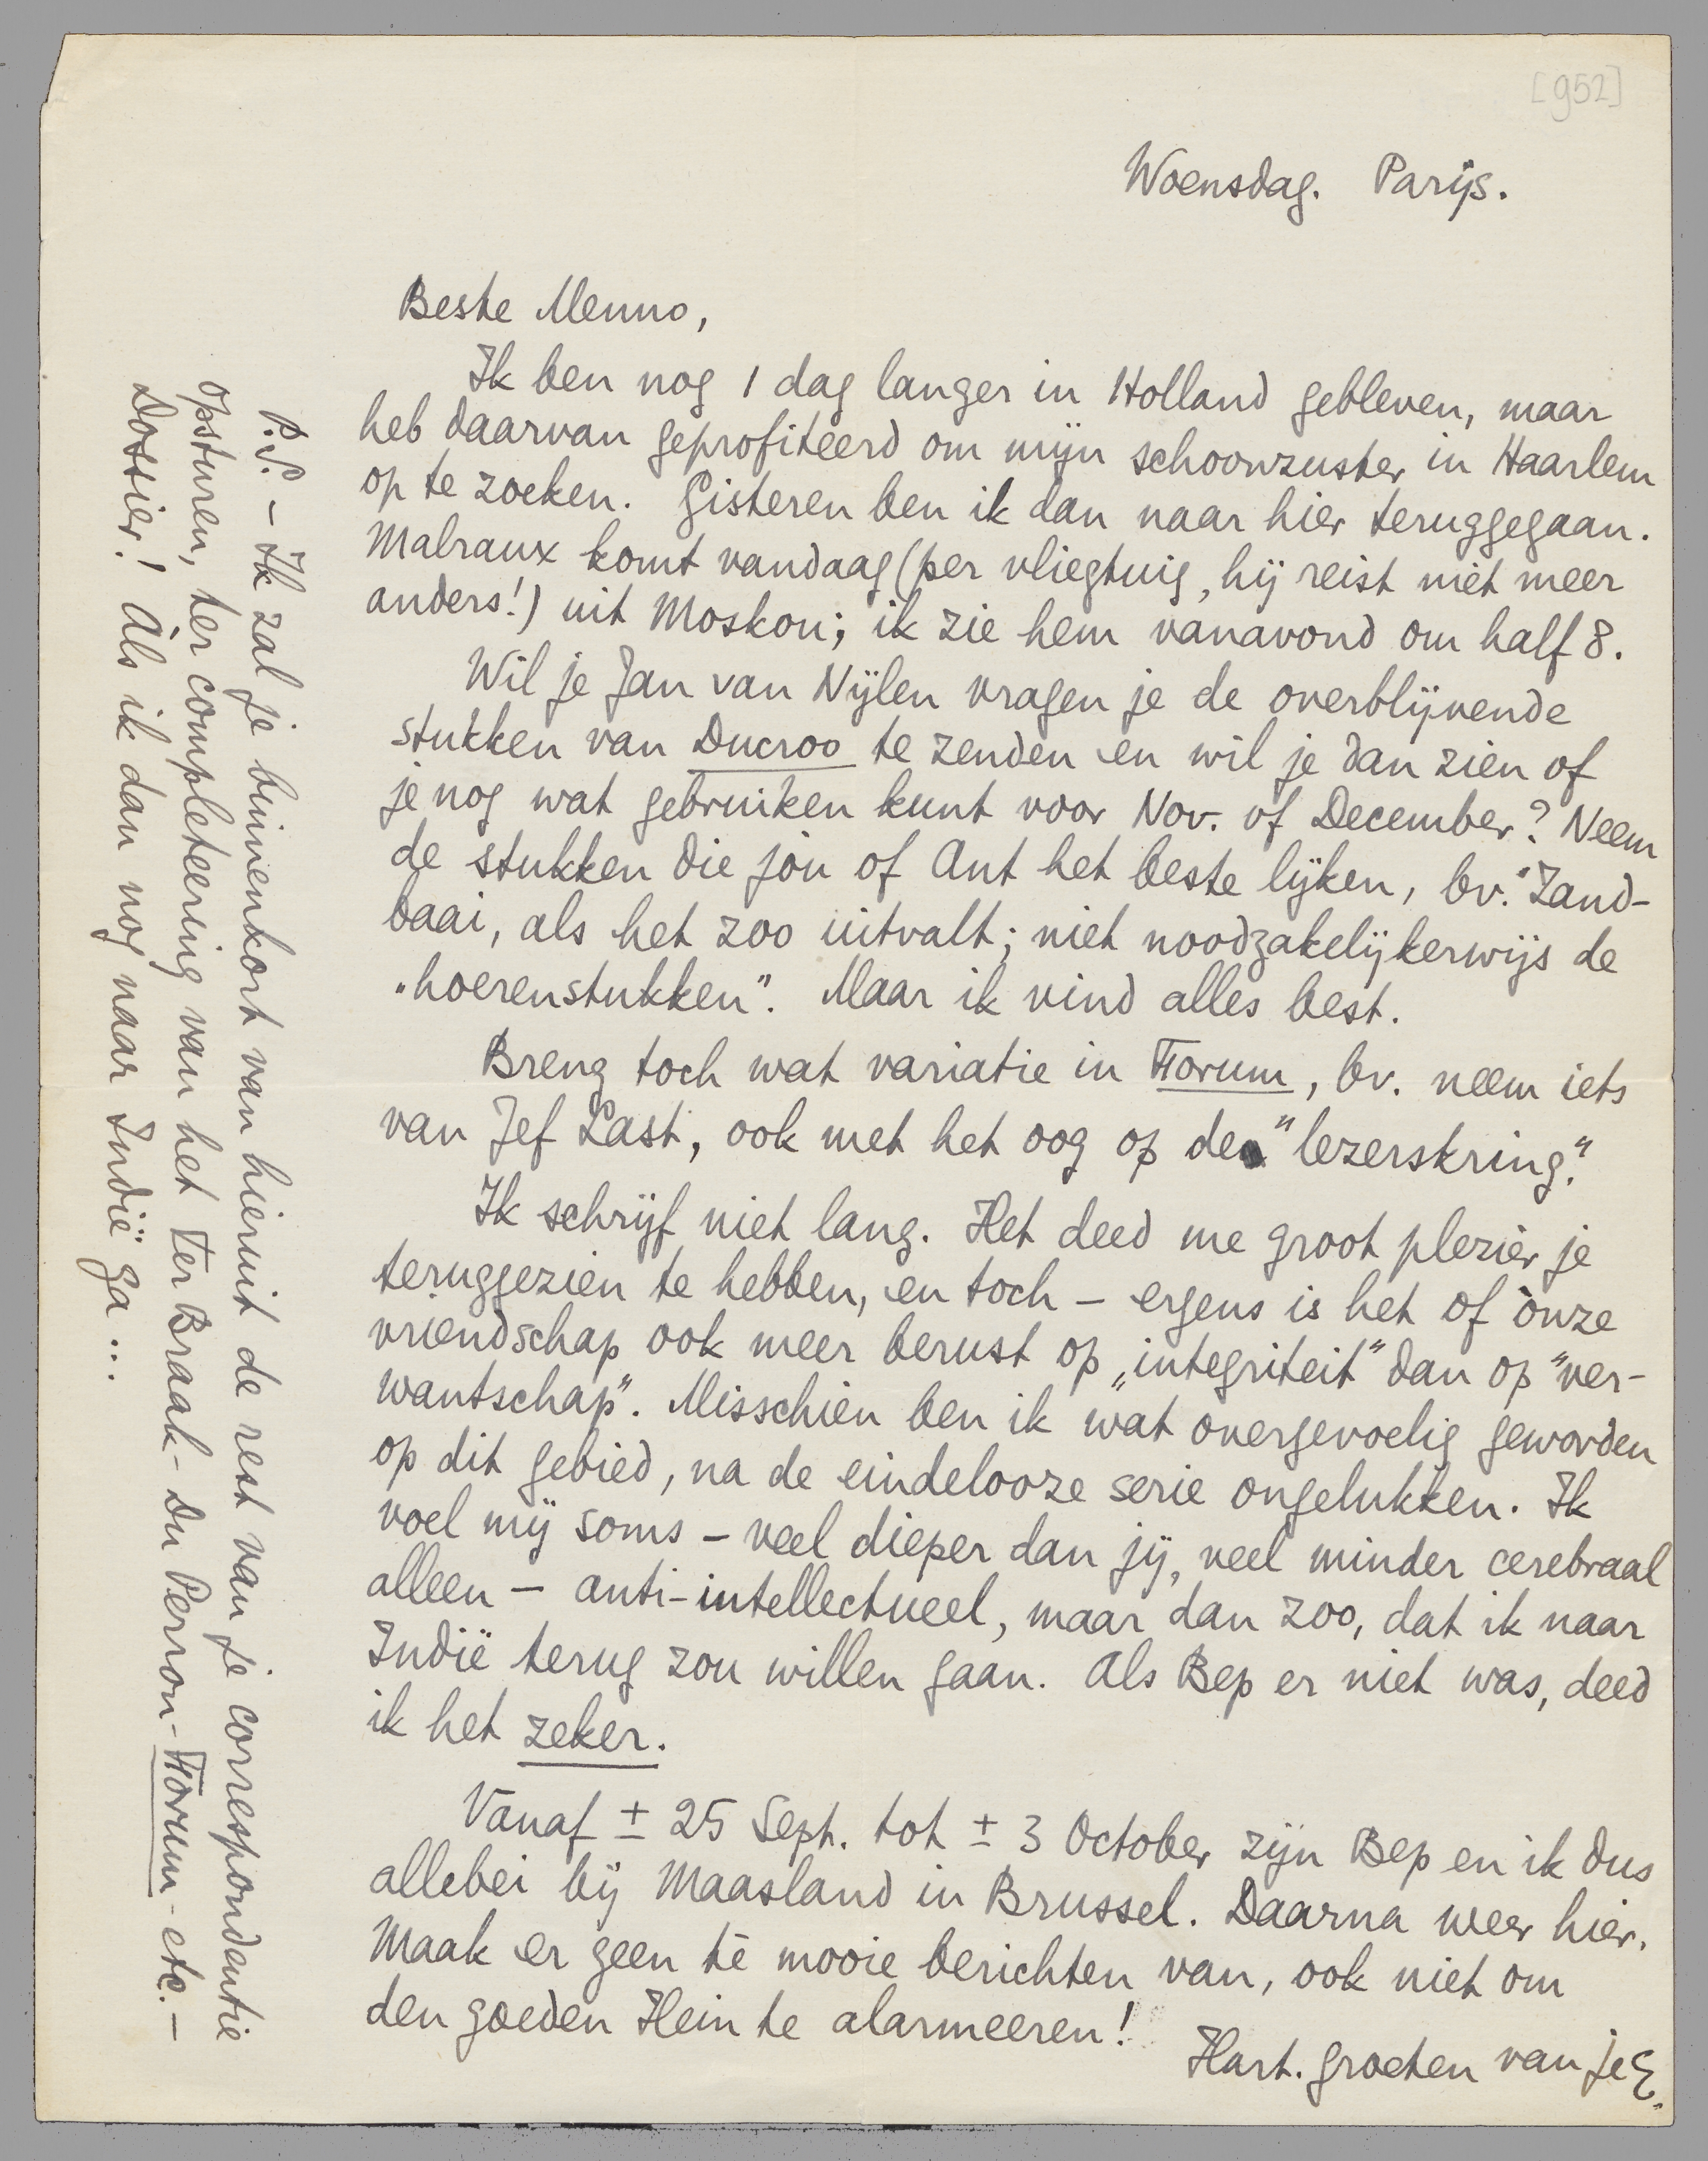 [952]
Woensdag. Parijs.
Beste Menno,
Ik ben nog 1 dag langer in Holland gebleven, maar
heb daarvan geprofiteerd om mijn schoonzuster in Haarlem
op te zoeken. Gisteren ben ik dan naar hier teruggegaan.
Malraux komt vandaag (per vliegtuig, hij reist niet meer
anders!) uit Moskou; ik zie hem vanavond om half 8.
Wil je Jan van Nijlen vragen je de overblijvende
stukken van Ducroo te zenden en wil je dan zien of
je nog wat gebruiken kunt voor Nov. of December? Neem
de stukken die jou of Ant het beste lijken, bv. "Zand-
baai, als het zoo uitvalt; niet noodzakelijkerwijs de
„hoerenstukken". Maar ik vind alles best.
Breng toch wat variatie in Forum, bv. neem iets
van Jef Last, ook met het oog op de "lezerskring".
Ik schrijf niet lang. Het deed me groot plezier je
teruggezien te hebben, en toch – ergens is het of ònze
vriendschap ook meer berust op „integriteit" dan op "ver-
wantschap". Misschien ben ik wat overgevoelig geworden
op dit gebied, na de eindelooze serie ongelukken. Ik
voel mij soms – veel dieper dan jij, veel minder cerebraal
alleen – anti-intellectueel, maar dan zoo, dat ik naar
Indië terug zou willen gaan. Als Bep er niet was, deed
ik het zeker.
Vanaf ± 25 Sept. tot ± 3 October zijn Bep en ik dus
allebei bij Maasland in Brussel. Daarna weer hier.
Maak er geen té mooie berichten van, ook niet om
den goeden Hein te alarmeeren!
Hart. groeten van je E.
P.S. – Ik zal je binnenkort van hieruit de rest van je correspondentie
opsturen, ter completeering van het Ter Braak - Du Perron - Forum - etc. –
Dossier! Als ik dan nog naar Indië ga ...